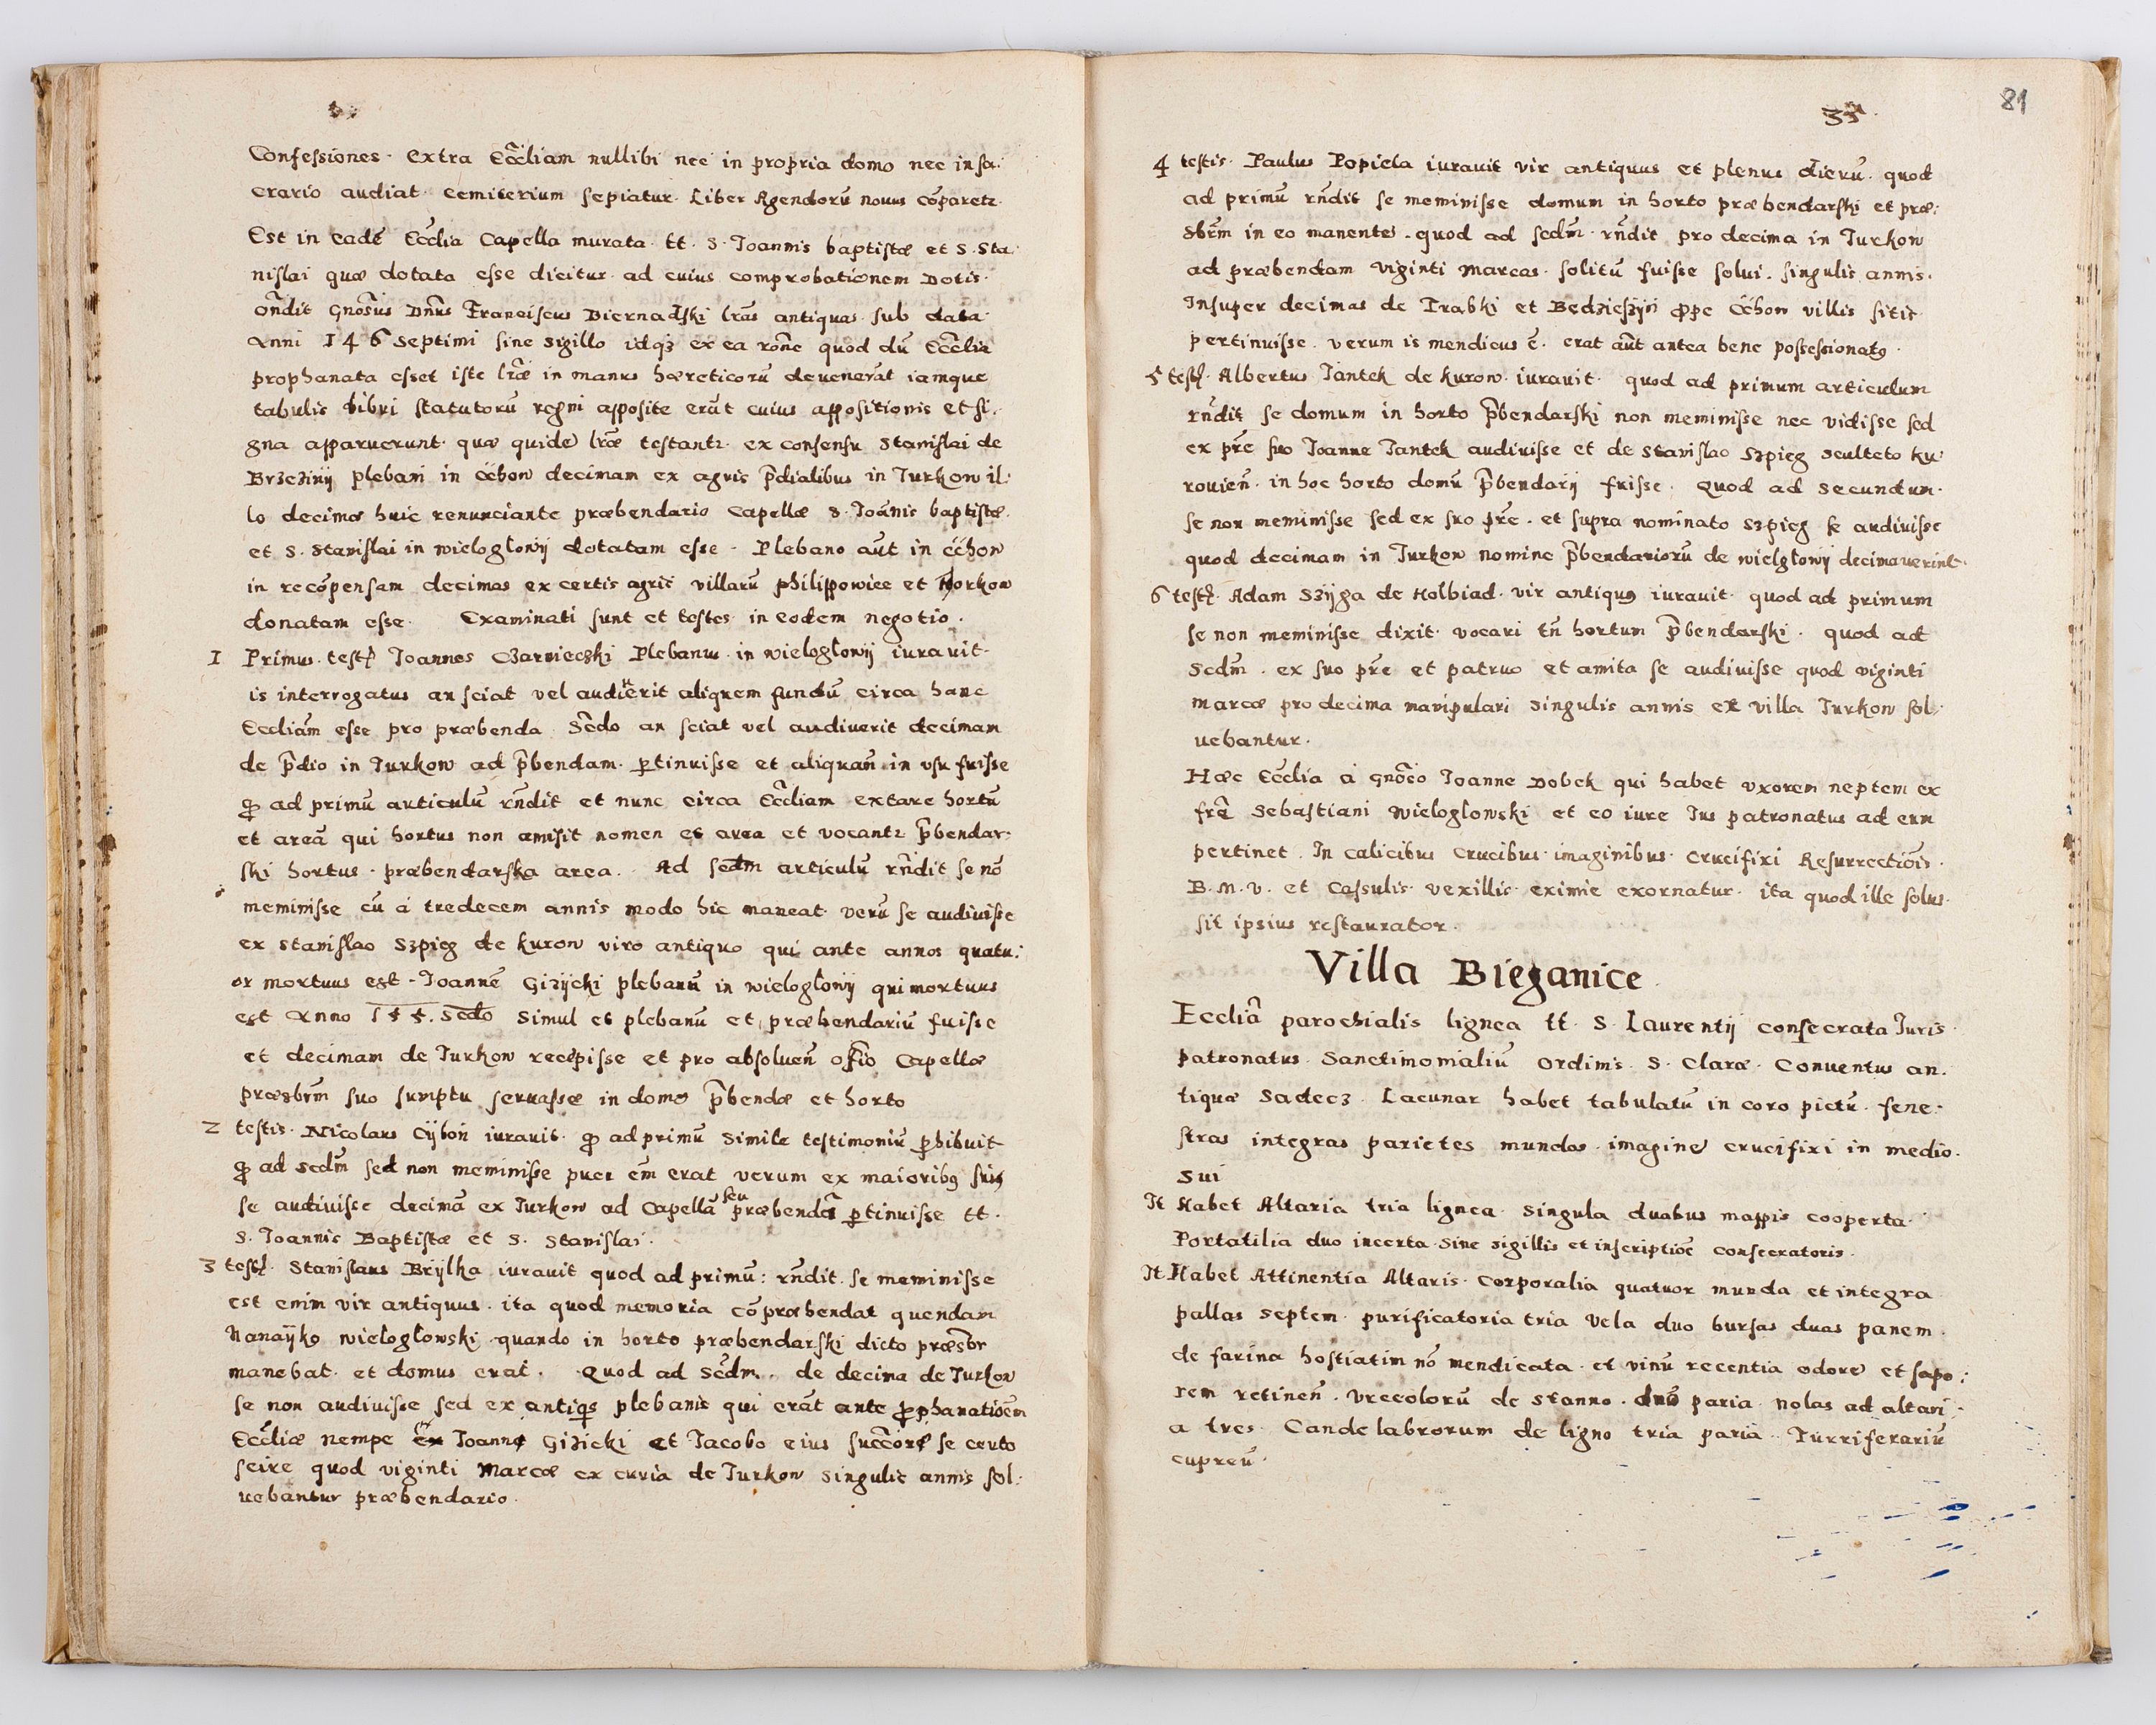 Confessiones. extra Eccl̃iam nullibi nec in propria domo nec in sa:
crario audiat. cemiterium sepiatur. Liber Agendorũ novus cõparetr.
Est in eadẽ Eccl̃ia Capella murata. tt. S. Joannis baptistæ et S. Sta:
nislai quæ dotata esse dicitur. ad cuius comprobationem Dotis.
oñdit Gnõsus Dñus Franciscus Biernadski lr̃as antiquas. sub data.
Anni 146 septimi sine sigillo idqȝ ex ea roñe quod dũ Eccl̃ia
prophanata esset iste lr̃æ in manus hæreticorũ devenerãt iamque
tabulis libri statutorũ regni apposite erãt cuius appositionis et si:
gna apparuerunt. quæ quidẽ lr̃æ testantr. ex consensu Stanislai de
Brzeziny plebani in Cchow decimam ex agris p̃dialibus in Jurkow il:
lo decimæ huic renunciante præbendario Capellæ S. Joãnis baptistæ.
et S. Stanislai in wielogłowy dotatam esse. Plebano aũt in Cchow
in recõpensam decimas ex certis agris villarũ philippowice et Horkow
donatam esse. Examinati sunt et testes in eodem negotio.
1 Primus. testis Joannes Czarnieczki Plebanus in wielogłowy iuravit.
is interrogatus an sciat vel audiuerit aliquem fundũ circa hanc
Eccliam̃ esse pro præbenda. Sẽdo an sciat vel audiverit decimam
de p̃dio in Jurkow ad p̃bendam. ꝑtinuisse et aliquañ in vsu fuisse
ꝙ ad primũ articulũ rñdit et nunc circa Eccl̃iam extare hortũ
et areã qui hortus non amisit nomen et area et vocantr p̃bendar:
ski hortus. præbendarska area. Ad sedm̃ articulũ rñdit se nõ
meminisse cũ á tredecem annis modo hic maneat. verũ se audiuisse
ex Stanislao Szpieg de kurow viro antiquo qui ante annos quatu:
or mortuus est. Joannẽ Gizycki plebanũ in wielogłowy qui mortuus
est Anno 155. Secdo simul et plebanũ et præbendariũ fuisse
et decimam de Jurkow recepisse et pro absoluen̄ offio Capellæ
præsbrm̃ suo sumptu seruasse in domo p̃bendæ et horto
2 testis. Nicolaus Cybon iuravit. ꝙ ad primũ simile testimoniũ ꝑhibuit
ꝙ ad sedm̃ sed non meminisse puer em̃ erat verum ex maioribꝯ suis
se audiuisse decimã ex Jurkow ad Capellã seu præbendã ꝑtinuisse tt.
S. Joannis Baptistæ et S. Stanislai.
3 testis. Stanislaus Brylka iuravit quod ad primũ: rñdit. se meminisse
est enim vir antiquus. ita quod memoria cõpræbendat quendam
Nanaÿko wielogłowski quando in horto præbendarski dicto præsbr
manebat. et domus erat. Quod ad Sedm̃. de decima de Jurkow
se non audiuisse sed ex antiqis plebanis qui erãt ante ꝓphanatioẽm
Eccl̃iæ nempe ex Joanne Gizicki et Jacobo eius succ̃ore se certo
scire quod viginti Marcæ ex curia de Jurkow singulis annis sol:
uebantur præbendario.
35
81
4 testis. Paulus Popiela iurauit vir antiquus et plenus dierũ. quod
ad primũ rñdit se meminisse domum in horto præbendarski et præ:
sbrm̃ in eo manentẽ. quod ad sedm̃. rñdit pro decima in Jurkow
ad præbendam viginti marcas. solitũ fuisse solui. singulis annis.
Insuper decimas de Trabki et Bedzieszyn ꝓpe Cchow villis sitis
pertinuisse. verum is mendicus ẽ. erat aũt antea bene possessionatꝯ.
5 testis. Albertus Jantek de kurow. iurauit. quod ad primum articulum
rñdit se domum in horto p̃bendarski non meminisse nec vidisse sed
ex pr̃e suo Joanne Jantek audiuisse et de Stanislao Szpieg Sculteto ku:
rouien̄. in hoc horto domũ p̃bendarij fuisse. Quod ad Secundum.
se non meminisse sed ex suo pr̃e. et supra nominato Szpieg se audiuisse
quod decimam in Jurkow nomine p̃bendariorũ de wielgłowy decimauerint.
6 testis. Adam Szyga de Holbiad. vir antiquꝯ iurauit. quod ad primum
se non meminisse dixit. vocari tñ hortum p̃bendarski. quod ad
Sedm̃. ex suo pr̃e et patruo et amita se audiuisse quod viginti
marcæ pro decima manipulari singulis annis ex villa Jurkow sol:
uebantur.
Hæc Eccl̃ia á Gnõso Joanne Dobek qui habet vxorem neptem ex
fr̃e Sebastiani Wielogłowski et eo iure Jus patronatus ad eum
pertinet. In calicibus crucibus. imaginibus. crucifixi Resurrectiõis.
B. M. V. et Cassulis. vexillis. eximie exornatur. ita quod ille solus.
sit ipsius restaurator.
Villa Bieganice
Eccliã parochialis lignea tt. S. Laurentij consecrata Juris.
patronatus. Sanctimonialiũ Ordinis. S. Claræ. Conuentus an.
tiquæ Sadecz. Lacunar habet tabulatũ in coro pictũ. fene:
stras integras parietes mundos. imaginẽ crucifixi in medio.
sui
It Habet Altaria tria lignea. singula duabus mappis cooperta.
Portatilia duo incerta sine sigillis et inscriptiõe consecratoris.
It Habet Attinentia Altaris. Corporalia quatuor munda et integra
pallas septem. purificatoria tria Vela duo bursas duas panem.
de farina hostiatim nõ mendicata. et vinũ recentia odorẽ et sapo:
rem retinen̄. Vrceolorũ de stanno. duo paria. nolas ad altari:
a tres. Candelabrorum de ligno tria paria. Turriferariũ
cupreũ.